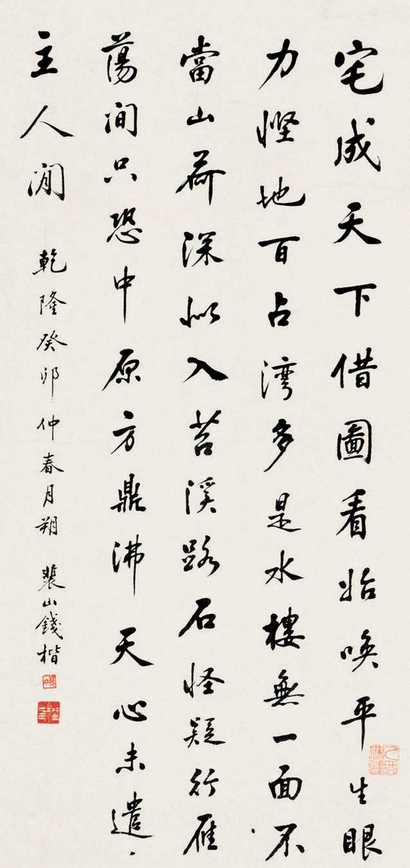 宅成天下借圖看始喚平生眼
力慳地百占灣多是水樓無一面不
當山荷深似入苕溪路石怪疑行雁
蕩間只恐中原方鼎沸天心未遣
主人閒
乾隆癸卯仲春月朔 裴山錢楷